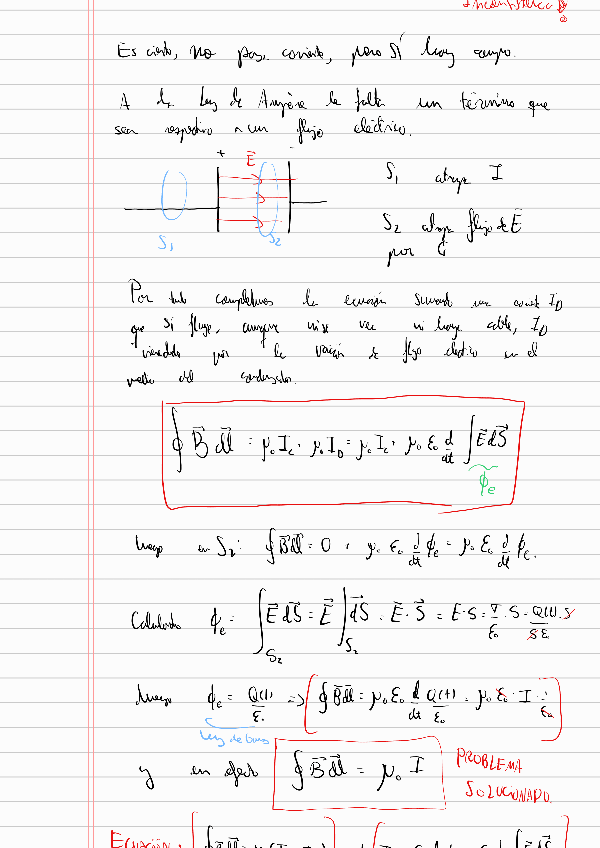 Es cierto, no pasa corriente, pero SÍ hay campo.
A la Ley de Ampère le falta un término que
sea respectivo a un flujo eléctrico.
+ E⃗ -
S₁ atrapa I
S₂ atrapa flujo de E⃗
por
S₁ S₂
Por tanto completamos la ecuación sumando una I_D
que sí fluye, aunque no se vea ni haya cable, I_D
por la variación de flujo eléctrico en el
medio del condensador.
∮ B⃗ dl⃗ = μ₀ I_c + μ₀ I_D = μ₀ I_c + μ₀ ε₀ d/dt ∫ E⃗ dS⃗
ϕ_e
luego en S₂: ∮ B⃗ dl⃗ = 0 + μ₀ ε₀ d/dt ϕ_e = μ₀ ε₀ d/dt ϕ_e.
Calculando ϕ_e = ∫_S₂ E⃗ dS⃗ = E⃗ ∫_S₂ dS⃗ = E⃗ · S⃗ = E · S = σ/ε₀ · S = Q(t) · S / S ε₀
luego ϕ_e = Q(t)/ε₀ => ∮ B⃗ dl⃗ = μ₀ ε₀ d/dt Q(t)/ε₀ = μ₀ ε₀ · I · 1/ε₀
Ley de Gauss
y en efecto ∮ B⃗ dl⃗ = μ₀ I PROBLEMA
SOLUCIONADO.